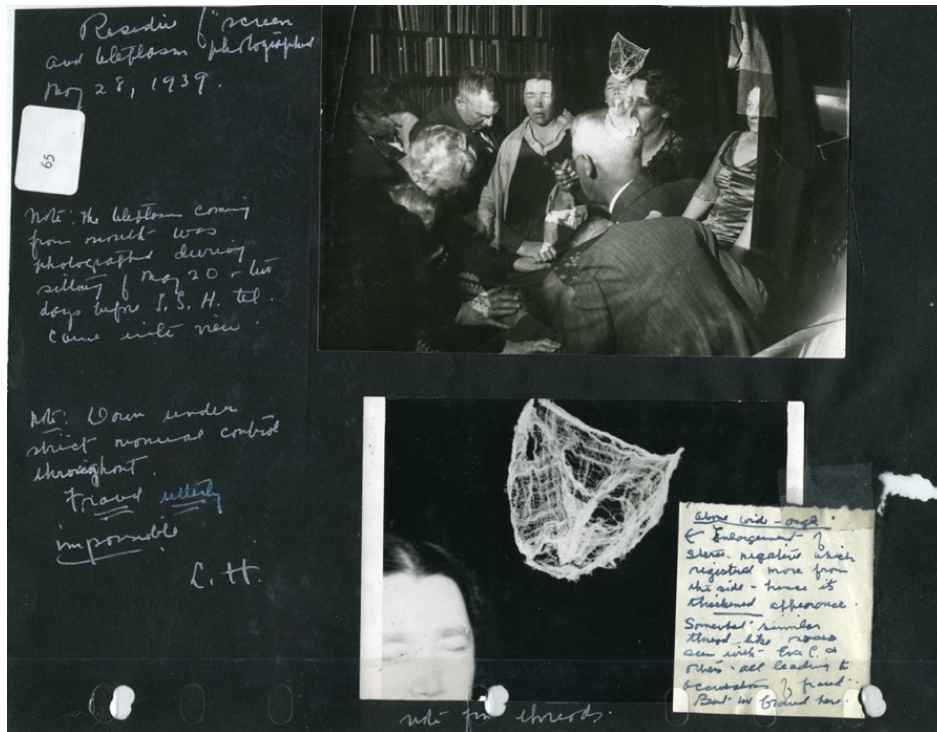 Residue of "screen
and teleplasm photographed
May 28, 1939.
65
Note: the teleplasm coming
from mouth was
photographed during
sitting of May 20 - two
days before S.S.H. tel.
came into view.
Note: Dawn under
strict manual control
throughout.
Fraud utterly
impossible
L.H.
above wide-angle
& Enlargement of
stereo. negative which
registered more from
the side - hence its
thickened appearance.
Somewhat similar
thread-like masses
seen with Eva C. &
others - all leading to
accusations of fraud.
But no fraud here.
note fine threads.